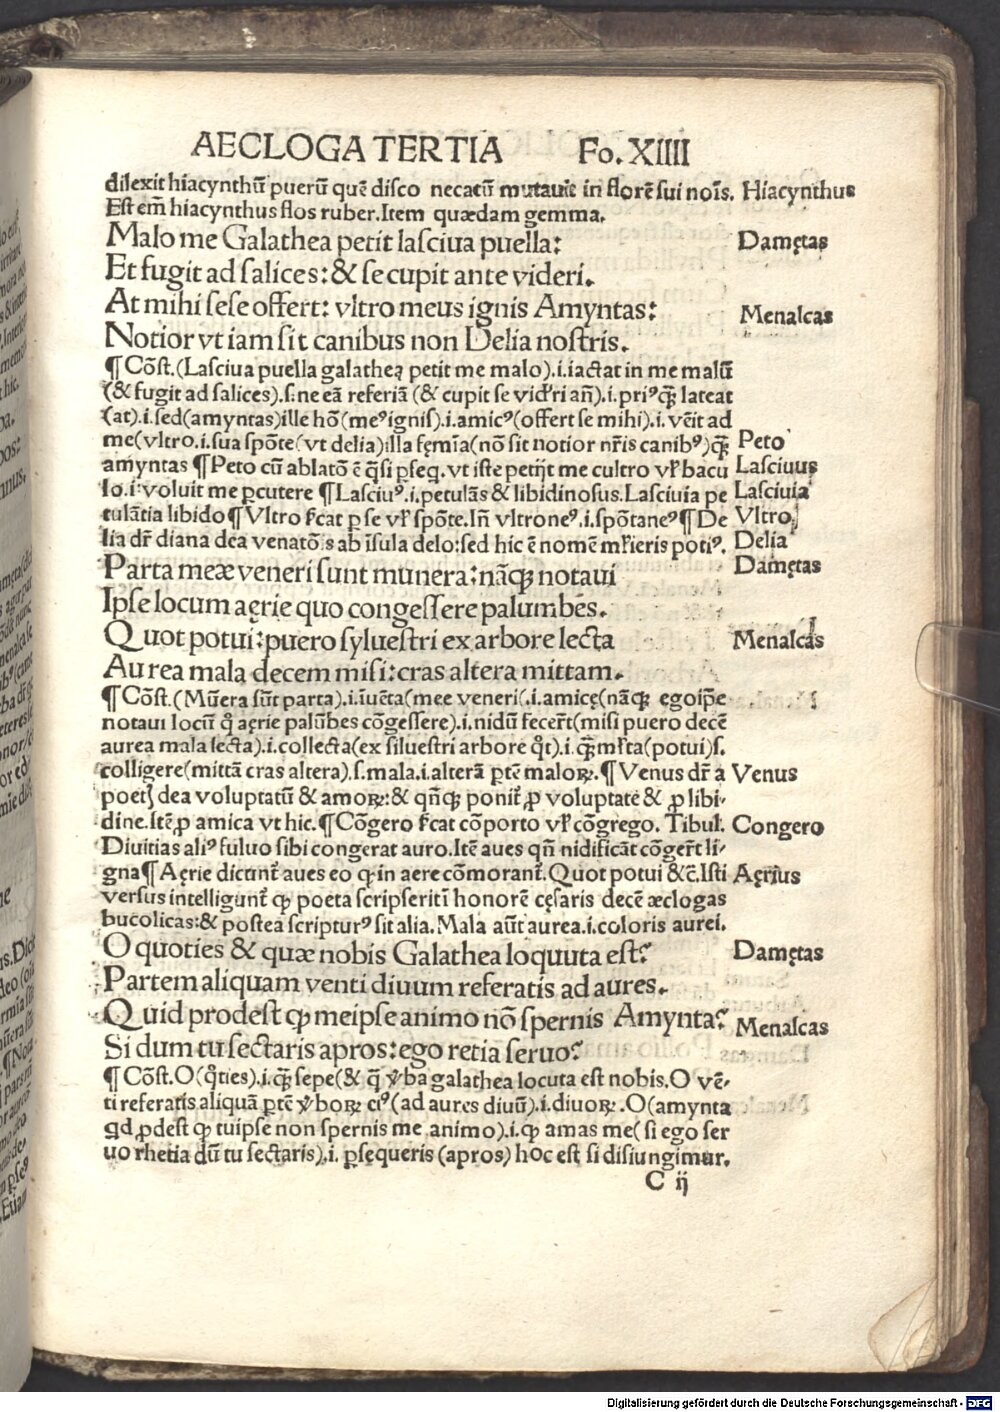 AECLOGA TERTIA Fo. XIIII
dilexit hiacynthũ puerũ quẽ disco necatũ mutauit in florẽ sui noĩs. Hiacynthus
Est em̃ hiacynthus flos ruber. Item quædam gemma.
Malo me Galathea petit lasciua puella: Damętas
Et fugit ad salices: & se cupit ante videri.
At mihi sese offert: vltro meus ignis Amyntas: Menalcas
Notior vt iam sit canibus non Delia nostris.
¶ Cõst. (Lasciua puella galatheą petit me malo) .i. iactat in me malũ
(& fugit ad salices) .s. ne eã referiã (& cupit se viđri añ) .i. pri⁹ꝙ̃ lateat
(at) .i. sed (amyntas) ille hõ (me⁹ ignis) .i. amic⁹ (offert se mihi) .i. vẽit ad
me (vltro .i. sua spõte (vt delia) illa fęmĩa (nõ sit notior nr̃is canib⁹) ꝙ̃ Peto
amyntas ¶ Peto cũ ablatõ ẽ q̃si ꝑseq. vt iste petijt me cultro vł bacu Lasciuus
lo. i. voluit me ꝑcutere ¶ Lasciu⁹ .i. petulãs & libidinosus. Lasciuia pe Lasciuia
tulãtia libido ¶ Vltro ſ̃cat ꝑ se vł spõte. Iñ vltrone⁹ .i. spõtane⁹ ¶ De Vltro
lia dr̃ diana dea venatõs ab ĩsula delo: sed hic ẽ nomẽ młieris poti⁹. Delia
Parta meæ veneri sunt munera: nãqꝫ notaui Damętas
Ipse locum aęrie quo congessere palumbes.
Quot potui: puero syluestri ex arbore lecta Menalcas
Aurea mala decem misi: cras altera mittam.
¶ Cõst. (Mũera sũt parta) .i. ĩuẽta (mee veneri( .i. amicę (nãqꝫ egoip̃e
notaui locũ q̊ aęrie palũbes cõgessere) .i. nidũ fecer̃t (misi puero decẽ
aurea mala lecta) .i. collecta (ex siluestri arbore q̊t) .i. ꝙ̃ młta (potui) s.
colligere (mittã cras altera) .s. mala .i. alterã ꝑtẽ maloꝝ. ¶ Venus dr̃ a Venus
poetꝭ dea voluptatũ & amoꝝ: & qñqꝫ ponit̃ ꝓ voluptate & ꝓ libi-
dine. Itẽ ꝓ amica vt hic. ¶ Cõgero ſ̃cat cõporto vł cõgrego. Tibuł. Congero
Diuitias ali⁹ fuluo sibi congerat auro. Itẽ aues qñ nidificãt cõger̃t li-
gna ¶ Aęrie dicunt̃ aues eo ꝙ in aere cõmorant̃. Quot potui &c̃. Isti Aęrius
versus intelligunt̃ ꝙ poeta scripserit ĩ honorẽ cęsaris decẽ æclogas
bucolicas: & postea scriptur⁹ sit alia. Mala aũt aurea .i. coloris aurei.
O quoties & quæ nobis Galathea loquuta est? Damętas
Partem aliquam venti diuum referatis ad aures.
Quid prodest ꝙ me ipse animo nõ spernis Amynta? Menalcas
Si dum tu sectaris apros: ego retia seruo?
¶ Cõst. O (q̊ties) .i. ꝙ̃ sepe (& q̃ v̓ba galathea locuta est nobis. O vẽ-
ti referatis aliquã ꝑtẽ v̓boꝝ ei⁹ (ad aures diuũ) .i. diuoꝝ. O (amynta
qd ꝓdest ꝙ tuipse non spernis me animo) .i. ꝙ amas me (si ego ser
uo rhetia dũ tu sectaris) .i. ꝑsequeris (apros) hoc est si disiungimur.
C ij
Digitalisierung gefördert durch die Deutsche Forschungsgemeinschaft - DFG